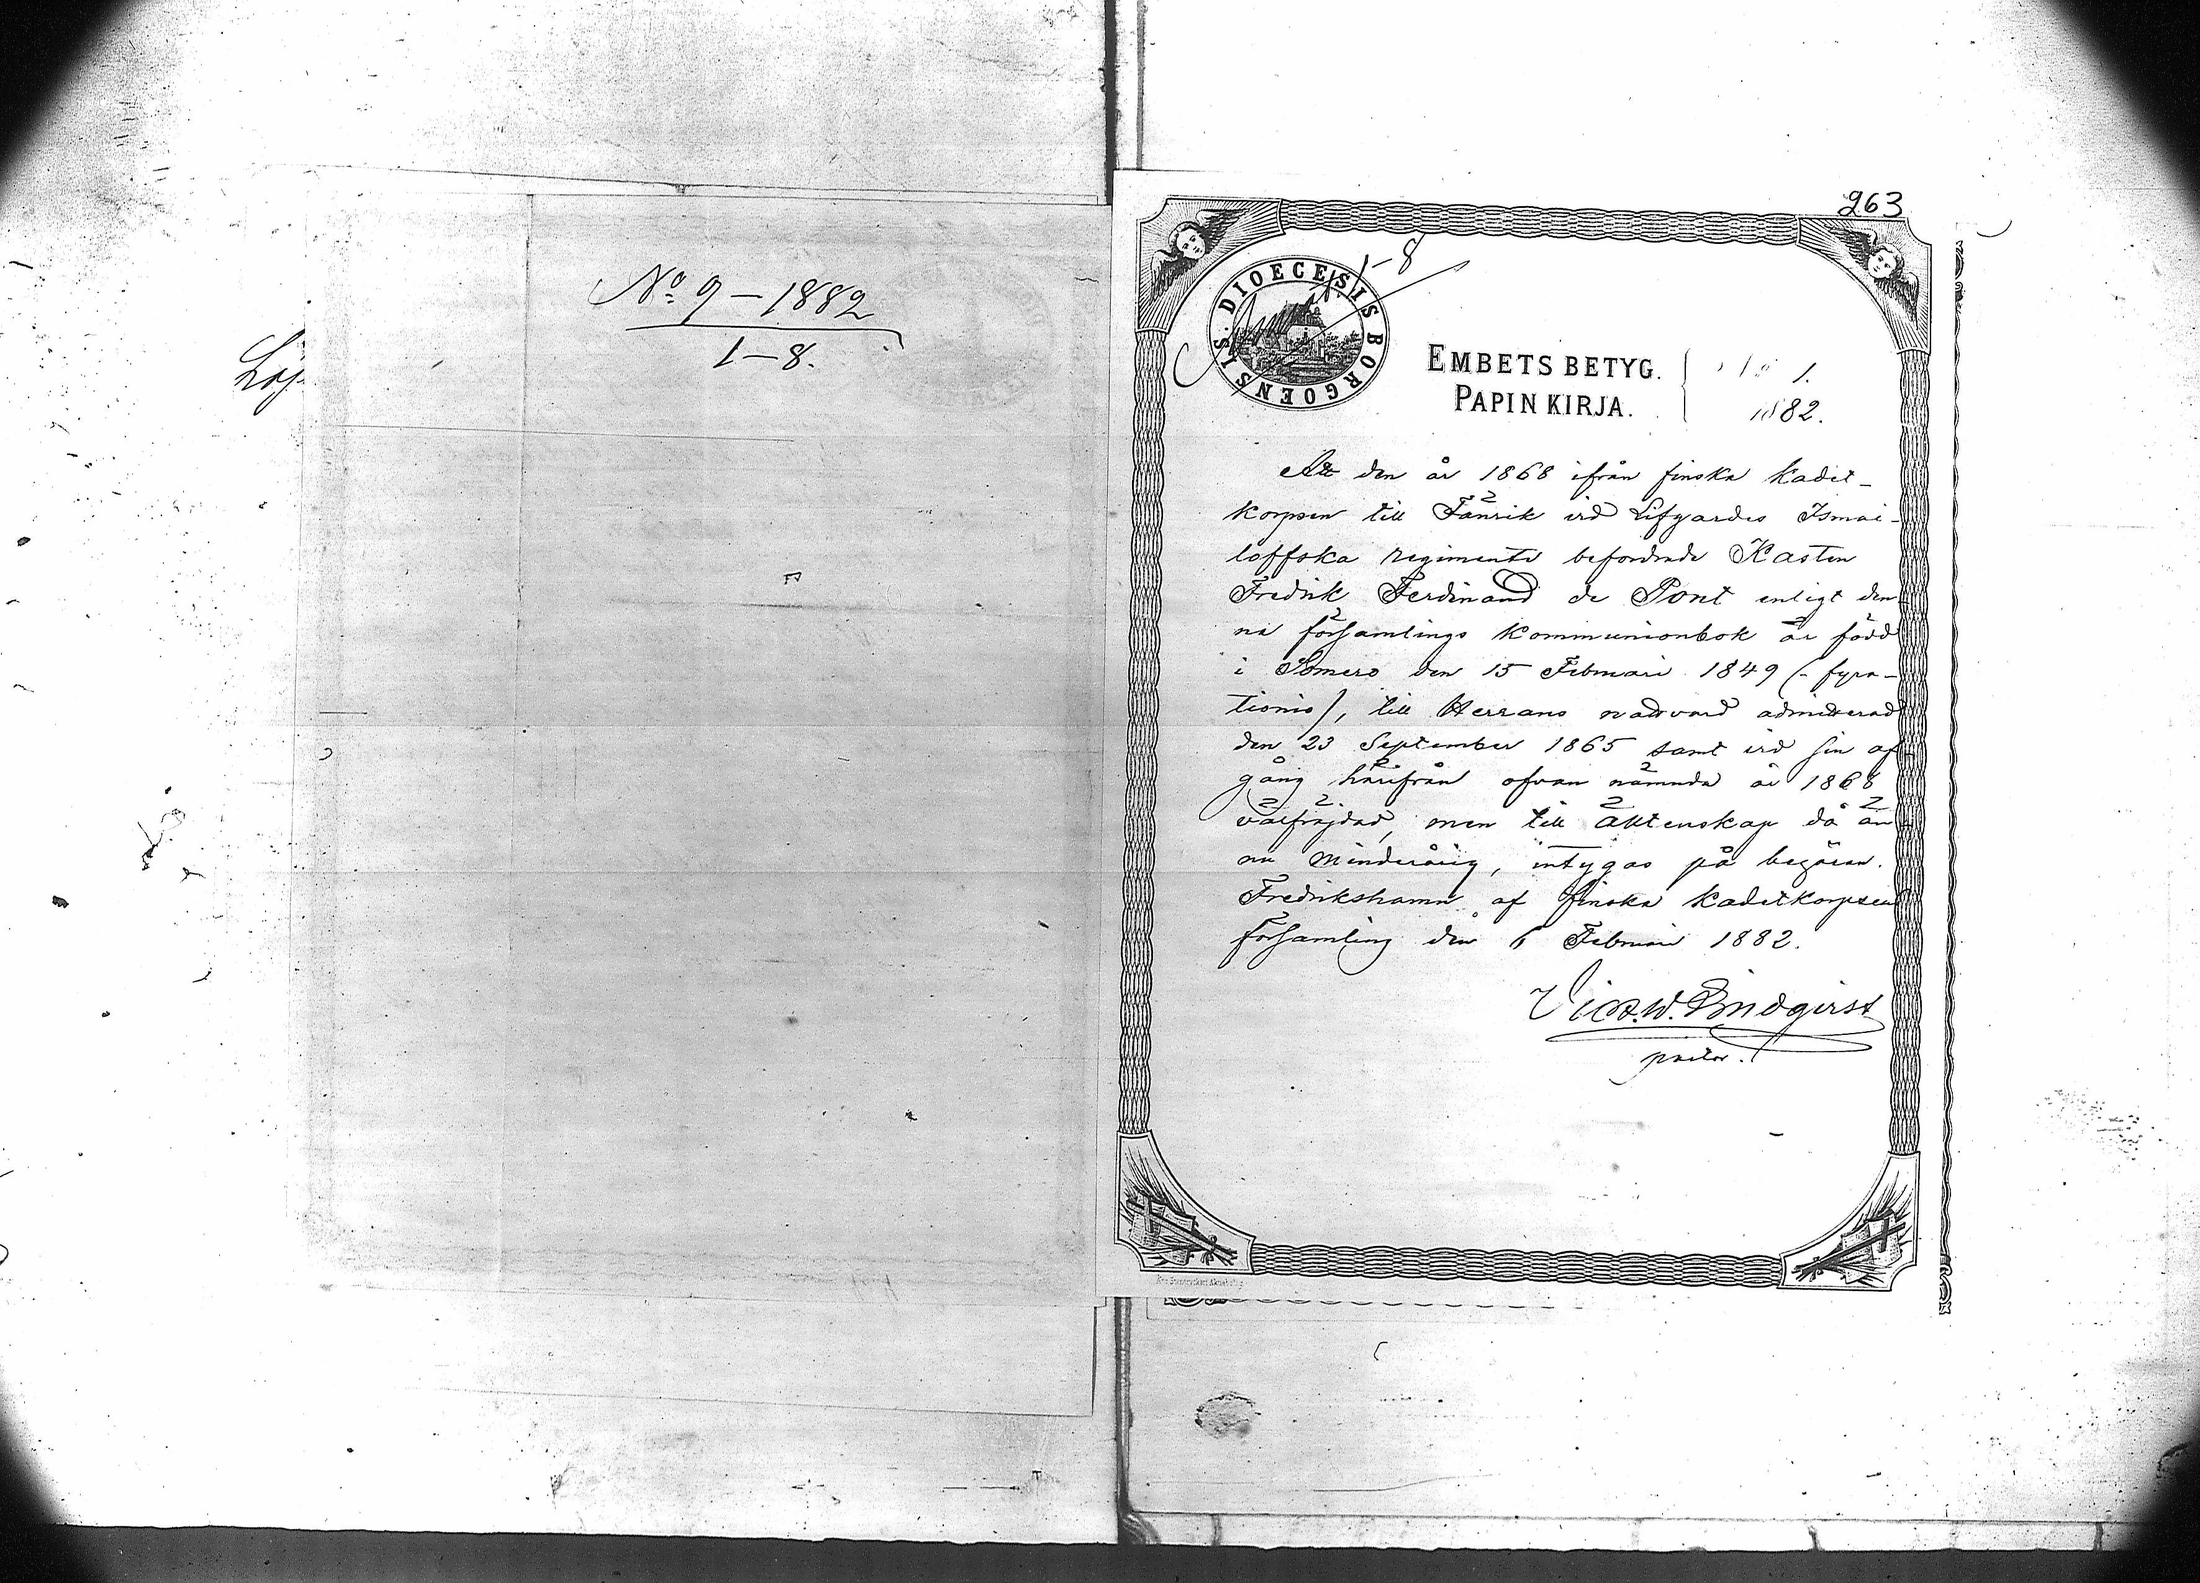 No 9 – 1882
1–8.
263
1–8
S. DIOECESIS BORGOENSIS.
EMBETS BETYG.
PAPIN KIRJA.
1.
1882.
Att den år 1868 ifrån finska Kadet-
korpsen till Fänrik vid Lifgardes Ismai-
loffska regimente befordrade Kasten
Fredrik Ferdinand de Pont enligt den-
na församlings kommunionbok är född
i Somero den 15 Februari 1849 (-fyra-
tionio), till Herrans nattvard admitterad
den 23 September 1865 samt vid sin af-
gång härifrån ofvan nämnda år 1868
välfräjdad, men till äktenskap då än-
nu minderårig, intygas på begäran.
Fredrikshamn af finska Kadetkorpsens
församling den 6 Februari 1882.
Vict. W. Lindqvist
pastor.